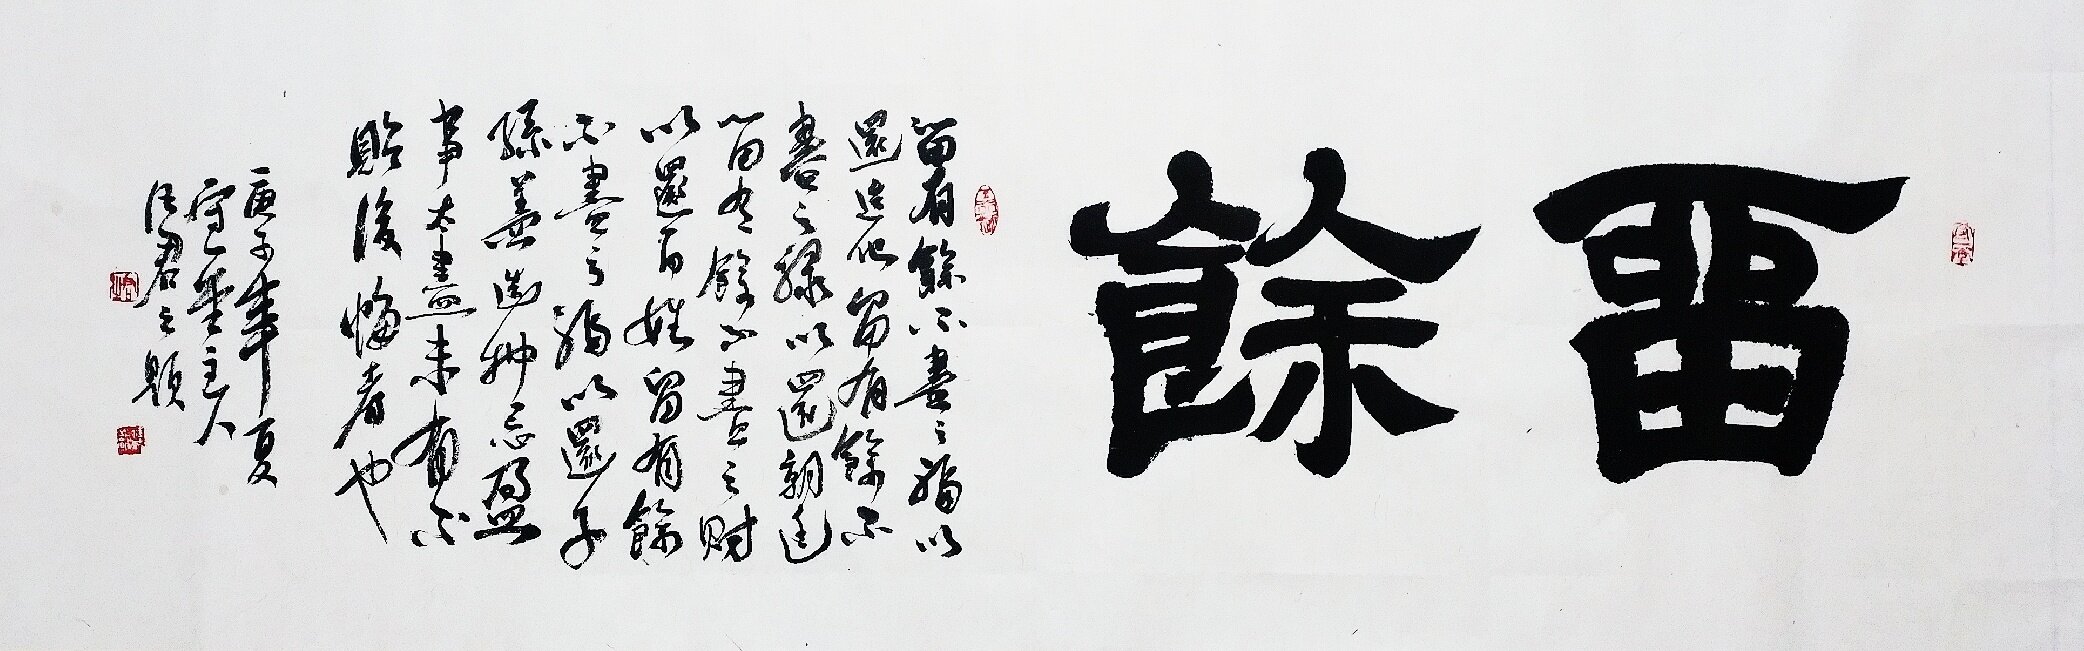 留餘
留有餘不盡之福以
還造化留有餘不
盡之祿以還朝廷
留有餘不盡之財
以還百姓留有餘
不盡之福以還子
孫蓋造物忌盈
事太盡未有不
貽後悔者也
庚子年夏
堂主人
君之題